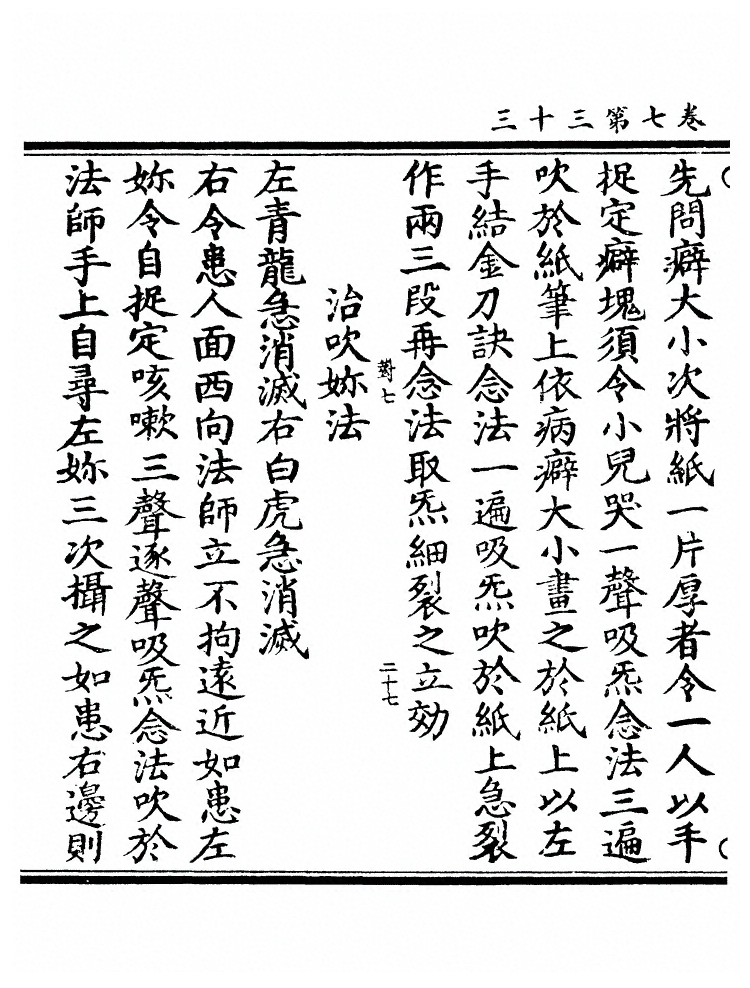 卷七第三十三
先問癖大小次將紙一片厚者令一人以手
捉定癖塊須令小兒哭一聲吸炁念法三遍
吹於紙筆上依病癖大小畫之於紙上以左
手結金刀訣念法一遍吸炁吹於紙上急裂
作兩三段再念法取炁細裂之立効
對七
二十七
治吹妳法
左青龍急消滅右白虎急消滅
右令患人面西向法師立不拘遠近如患左
妳令自捉定咳嗽三聲逐聲吸炁念法吹於
法師手上自尋左妳三次攝之如患右邊則